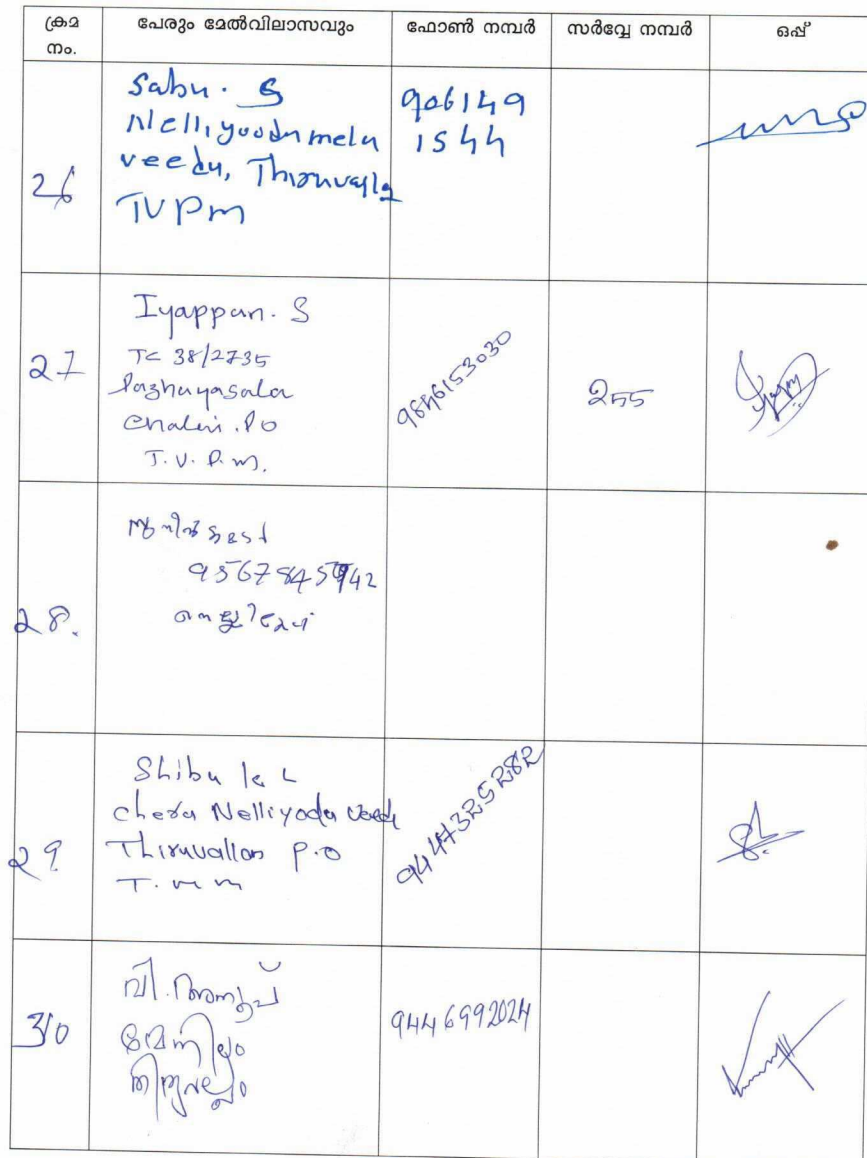 ക്രമ നം. പേരും മേൽവിലാസവും ഫോൺ നമ്പർ സർവ്വേ നമ്പർ ഒപ്പ്
26
Sabu. S
Nelliyoodu mela
veedu, Thiruvalla
TVPm
906149
1544
27
Iyappan. S
TC 38/2735
Pazhayasala
Chalai. PO
T.V.P.m.
9846153030
255
28.
29
Shibu k L
chera Nelliyodu veedu
Thiruvallam P.O
9447325282
30
വി. അനൂപ്
തിരുവല്ലം
9446992024